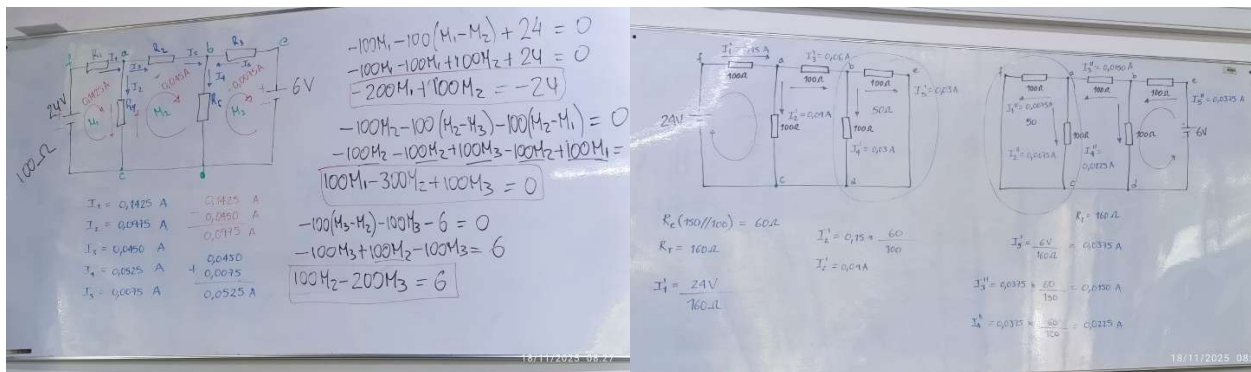 R₁ I₁ a R₂ I₃ b R₃ e
I₅
f
24V
0,1425A
I₂
0,0450A
I₄
0,0075A
6V
M₁
R₄
M₂
R₅
M₃
100Ω
c
d
I₁ = 0,1425 A
I₂ = 0,0975 A
I₃ = 0,0450 A
I₄ = 0,0525 A
I₅ = 0,0075 A
0,1425
- 0,0450
0,0975
0,0450
+ 0,0075
0,0525 A
-100M₁-100(M₁-M₂)+24 = 0
-100M₁-100M₁+100M₂+24 = 0
-200M₁+100M₂ = -24
-100M₂-100(M₂-M₃)-100(M₂-M₁) = 0
-100M₂-100M₂+100M₃-100M₂+100M₁ =
100M₁-300M₂+100M₃ = 0
-100(M₃-M₂)-100M₃-6 = 0
-100M₃+100M₂-100M₃ = 6
100M₂-200M₃ = 6
18/11/2025 08:27
f
100Ω
a
I₃' = 0,06A
100Ω
b
100Ω
e
24V
I₂' = 0,09A
100Ω
50Ω
100Ω
I₄' = 0,03A
I₅' = 0,03A
c
d
R_E (150//100) = 60Ω
R_T = 160Ω
I₁' = 24V / 160Ω
I₂' = 0,15 * 60 / 100
I₂' = 0,09A
f
100Ω
a
I₃'' = 0,0150A
100Ω
b
100Ω
e
I₁'' = 0,0075A
50
I₂'' = 0,0075A
100Ω
I₄'' = 0,0225A
100Ω
I₅'' = 0,0375A
6V
c
d
= 160Ω
= 6V / 160Ω = 0,0375A
I₃'' = 0,0375 * 60 / 150 = 0,0150A
= 0,0375 * 60 / 100 = 0,0225A
18/11/2025 08: